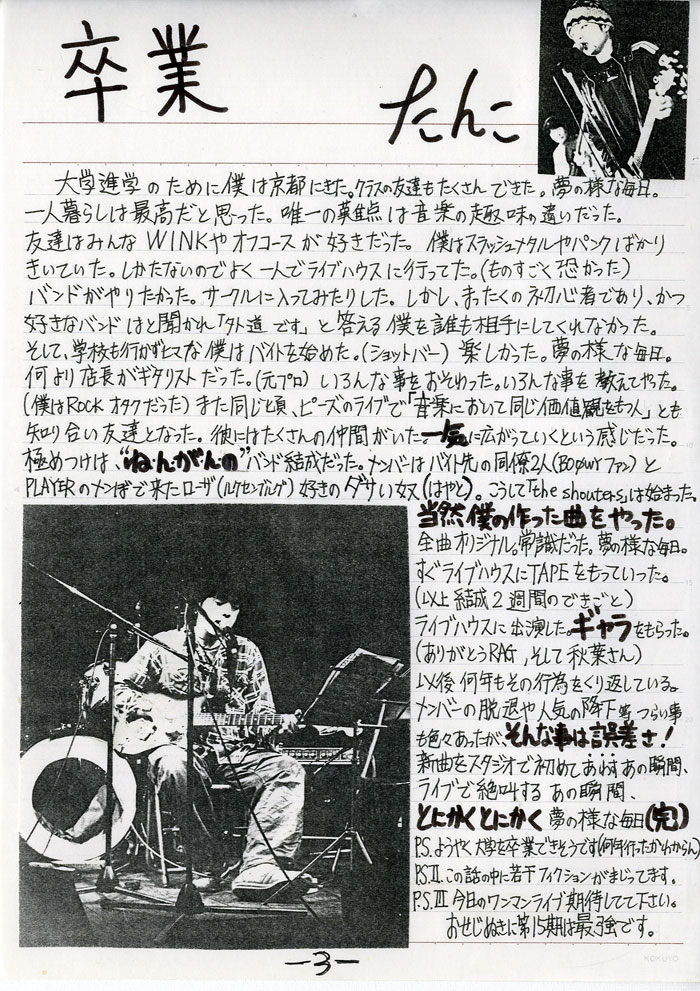 卒業
たんこ
大学進学のために僕は京都にきた。クラスの友達もたくさんできた。夢の様な毎日。
一人暮らしは最高だと思った。唯一の難点は音楽の趣味の違いだった。
友達はみんなWINKやオフコースが好きだった。僕はスラッシュメタルやパンクばかり
きいていた。しかたないのでよく一人でライブハウスに行ってた。(ものすごく恐かった)
バンドがやりたかった。サークルに入ってみたりした。しかし、まったくの初心者であり、かつ
好きなバンドはと聞かれ「外道です」と答える僕を誰も相手にしてくれなかった。
そして、学校も行かずヒマな僕はバイトを始めた。(ショットバー)楽しかった。夢の様な毎日。
何より店長がギタリストだった。(元プロ)いろんな事をおそわった。いろんな事を教えてやった。
(僕はROCKオタクだった)また同じ頃、ピーズのライブで「音楽において同じ価値観をもつ人」とも
知り合い友達となった。彼にはたくさんの仲間がいた。一気に広がっていくという感じだった。
極めつけは、"ねんがんの"バンド結成だった。メンバーはバイト先の同僚2人(BOØWYファン)と
PLAYERのメンぼで来たローザ(ルクセンブルグ)好きのダサい奴(はやと)。こうして「the shouters」は始まった。
当然僕の作った曲をやった。
全曲オリジナル。常識だった。夢の様な毎日。
すぐライブハウスにTAPEをもっていった。
(以上結成2週間のできごと)
ライブハウスに出演した。ギャラをもらった。
(ありがとうRAG,そして秋葉さん)
以後何年もその行為をくり返している。
メンバーの脱退や人気の降下等つらい事
も色々あったが、そんな事は誤差さ!
新曲をスタジオで初めてあわすあの瞬間、
ライブで絶叫するあの瞬間、
とにかくとにかく夢の様な毎日(完)
P.S.ようやく大学を卒業できそうです(何年行ったかわからん)
P.S.II.この話の中に若干フィクションがまじってます。
P.S.III今日のワンマンライブ期待してて下さい。
おせじぬきに第15期は最強です。
-3-
KOKUYO